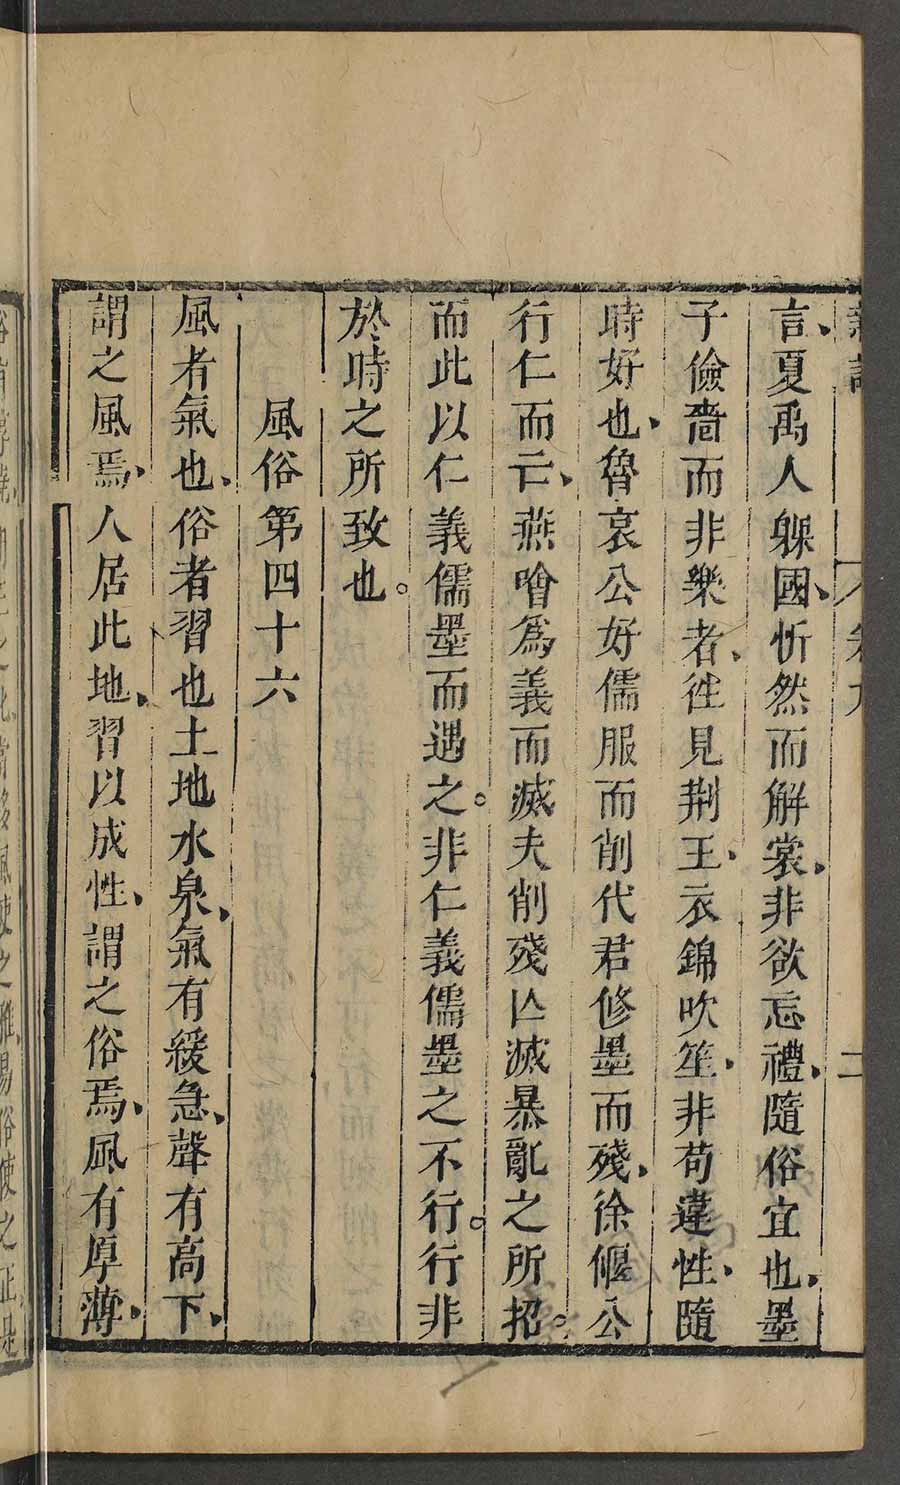 言、夏禹人躶國、忻然而解裳、非欲忘禮、隨俗宜也、墨
子儉嗇而非樂者、徃見荆王、衣錦吹笙、非苟違性、隨
時好也、魯哀公好儒服而削代君修墨而殘、徐偃公
行仁而亡、燕噲爲義而滅夫削殘亾滅暴亂之所招。
而此以仁義儒墨而遇之。非仁義儒墨之不行。行非
於時之所致也。
風俗第四十六
風者氣也、俗者習也土地水泉、氣有緩急、聲有高下、
謂之風焉、人居此地、習以成性、謂之俗焉、風有厚薄、